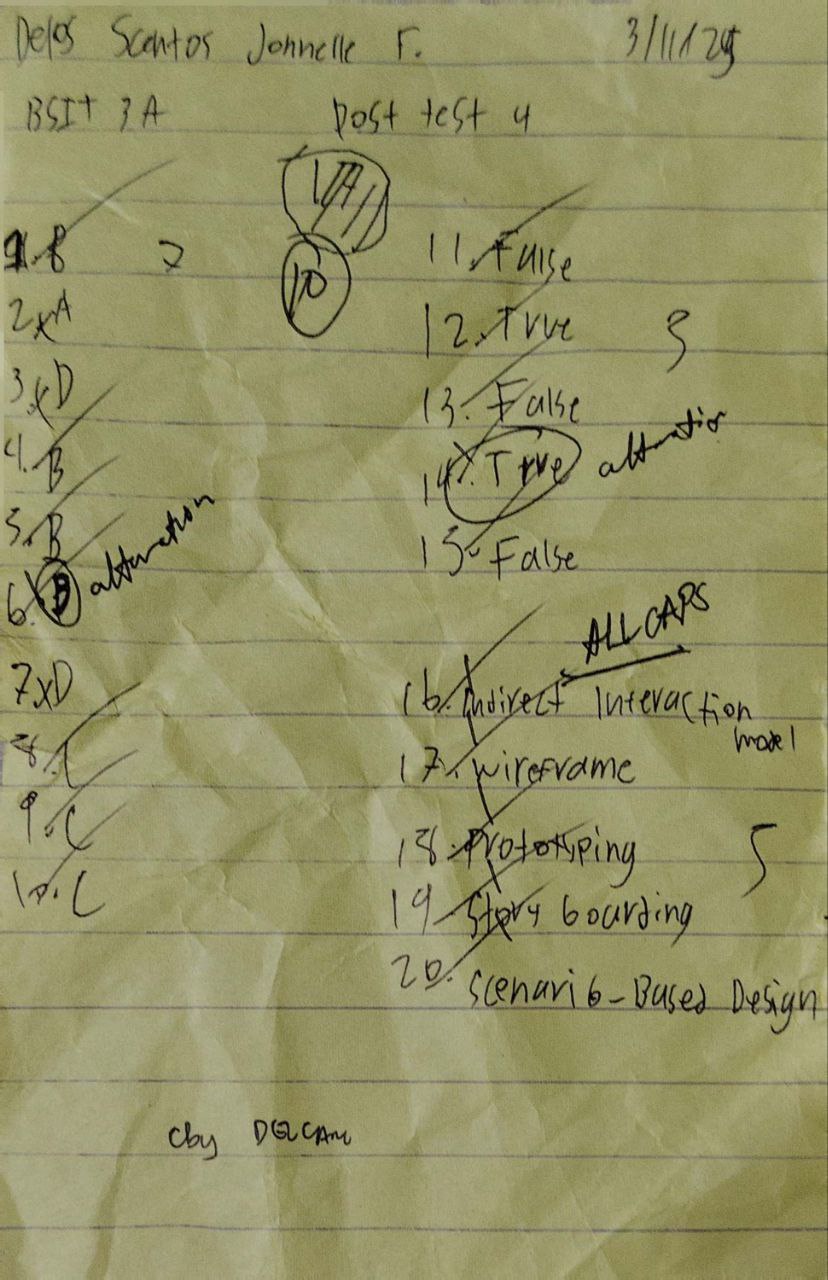 Delos Scantos Jonnelle F. 3/11/25
BSIT 3A post test 4
1. B
2. A
3. D
4. B
5. B
6. B alturation
7. D
8. C
9. C
10. C
7
10
11. False
12. True
13. False
14. True alturation
15. False
3
ALL CAPS
16. indirect Interaction
model
17. wireframe
18. Prototyping
19 Story boarding
20. Scenario-Based Design
5
Cby